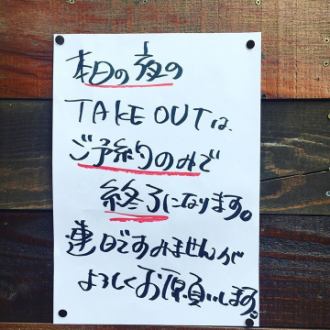 本日の夜の
TAKE OUTは、
ご予約のみで
終了になります。
連日ですみませんが
よろしくお願いします。